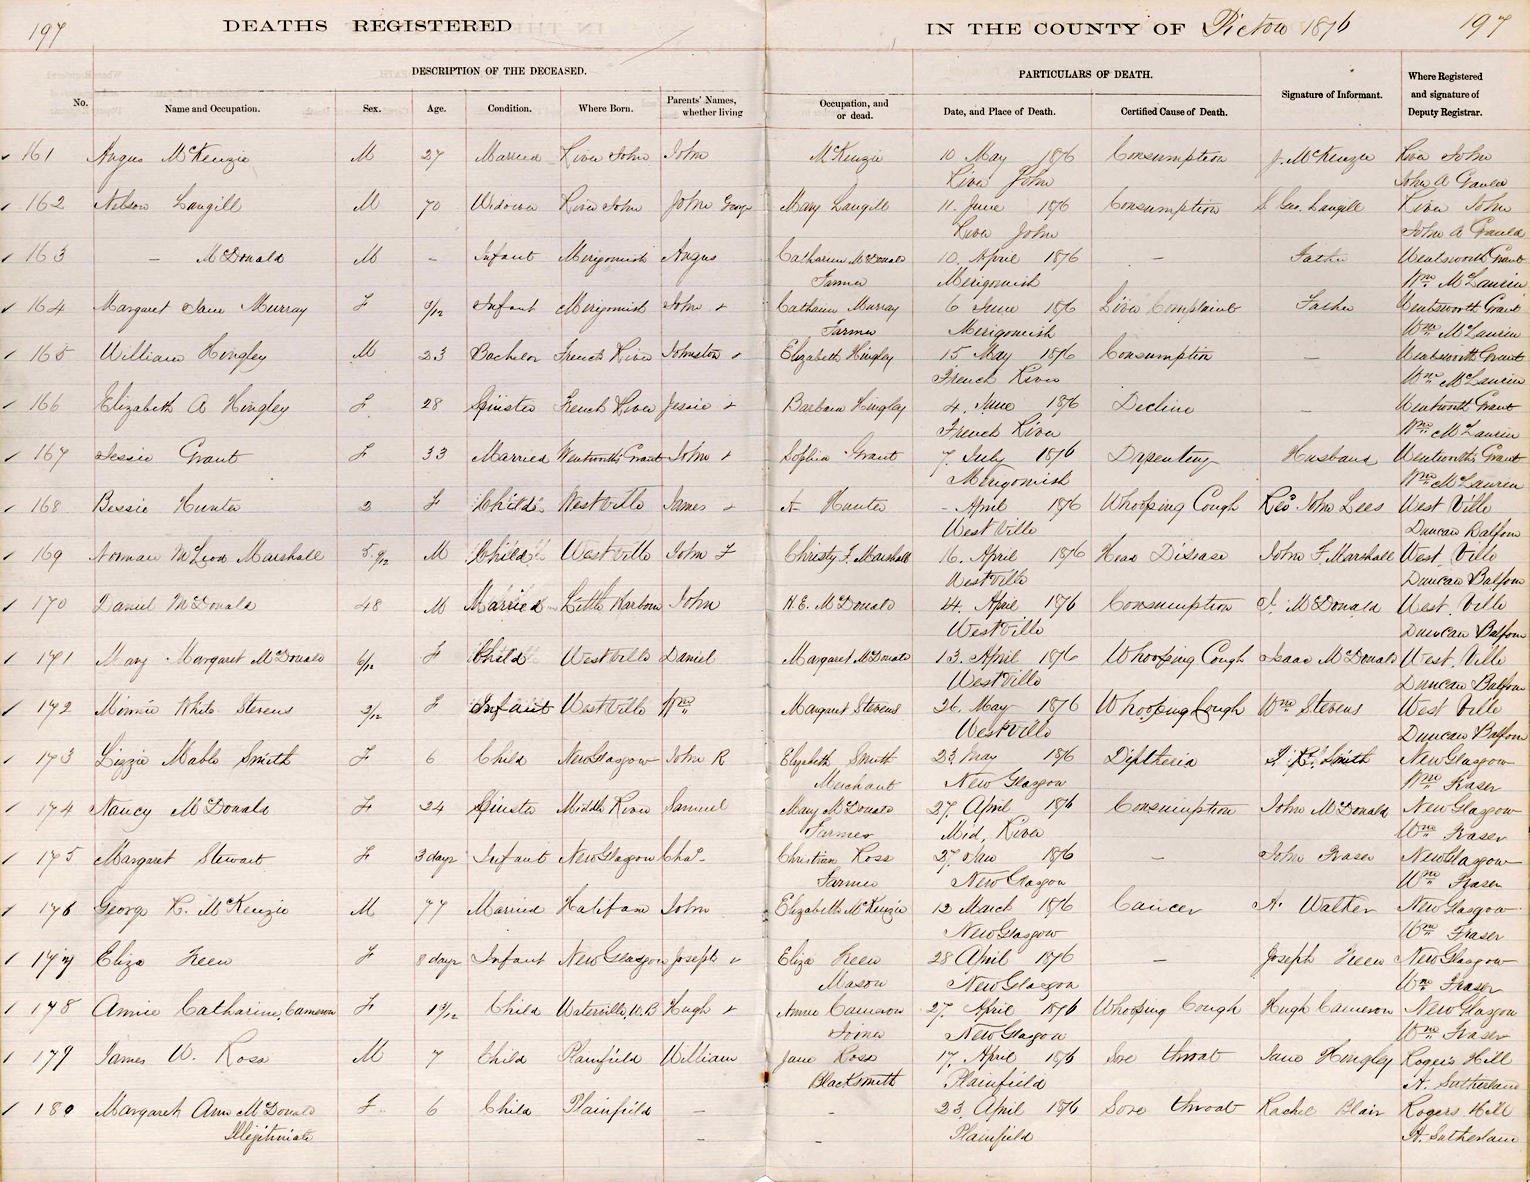 197 DEATHS REGISTERED IN THE COUNTY OF Pictou 1876 197
DESCRIPTION OF THE DECEASED. PARTICULARS OF DEATH.
No. Name and Occupation. Sex. Age. Condition. Where Born. Parents' Names, whether living Occupation, and or dead. Date, and Place of Death. Certified Cause of Death. Signature of Informant. Where Registered and signature of Deputy Registrar.
161 Angus McKenzie M 27 Married River John John McKenzie 10 May 1876 Consumption J. McKenzie River John
River John John A Gauld
162 Nelson Langill M 70 Widower River John John Geoge Mary Langill 11. June 1876 Consumption S. Geo. Langill River John
River John John A Gauld
163 — McDonald M — Infant Merigomish Angus Catharine McDonald 10. April 1876 — Father Wentworth Grant
Farmer Merigomish Wm McLaurin
164 Margaret Jane Murray F /12 Infant Merigomish John + Catharine Murray 6 June 1876 Liver Complaint Father Wentsworth Grant
Farmer Merigomish Wm McLaurin
165 William Hingley M 23 Bachelor French River Johnston + Elizabeth Hingley 15 May 1876 Consumption — Wentsworth Grant
French River Wm McLaurin
166 Elizabeth A Hingley F. 28 Spinster French River Jessie + Barbara Hingley 4. June 1876 Decline — Wentworth Grant
French River Wm McLaurin
167 Jessie Grant F 33 Married Wentworth Grant John + Sophia Grant 7. July 1876 Dysentery Husband Wentworth Grant
Merigomish Wm McLauren
168 Bessie Hunter 2 F Child West Ville James + A Hunter - April 1876 Whooping Cough Revd John Lees West Ville
West Ville Duncan Balfour
169 Norman McLeod Marshall 5. 9/12 M Child West Ville John F Christy F. Marshall 16. April 1876 Head Disease John F. Marshall West Ville
West Ville Duncan Balfour
170 Daniel McDonald 48 M Married Little Harbour John H.E. McDonald 4. April 1876 Consumption J. McDonald West. Ville
West Ville Duncan Balfour
171 Mary Margaret McDonald 6/12 F Child West Ville Daniel Margaret McDonald 13. April 1876 Whooping Cough Isaac McDonald West. Ville
West Ville Duncan Balfour
172 Minnie White Stevens 2/12 F Infant West Ville Wm Margaret Stevens 26. May 1876 Whooping Cough Wm Stevens West Ville
West Ville Duncan Balfour
173 Lizzie Mable Smith F 6 Child New Glasgow John R Elizabeth Smith 23 May 1876 Diptheria J. R. Smith New Glasgow
Merchant New Glasgow Wm Fraser
174 Nancy McDonald F 24 Spinster Middle River Samuel Mary McDonald 27. April 1876 Consumption John McDonald New Glasgow
Farmer Mid. River Wm Fraser
175 Margaret Stewart F 3 days Infant New Glasgow Chas. Christian Ross 27. Jan 1876 — John Fraser New Glasgow
Farmer New Glasgow Wm Fraser
176 George R. McKenzie M 77 Married Halifax John Elizabeth McKenzie 12 March 1876 Cancer A. Walker New Glasgow
New Glasgow Wm Fraser
177 Eliza Keen F 8 days Infant New Glasgow Joseph + Eliza Keen 28 April 1876 — Joseph Keen New Glasgow
Mason New Glasgow Wm Fraser
178 Annie Catharine Cameron F /12 Child Waterville, N.B Hugh + Annie Cameron 27. April 1876 Whooping Cough Hugh Cameron New Glasgow
New Glasgow Wm Fraser
179 James W. Ross M 7 Child Plainfield William Jane Ross 17. April 1876 Sore throat Jane Hingley Rogers Hill
Blacksmith Plainfield A. Sutherland
180 Margaret Ann McDonald F. 6 Child Plainfield — - 23. April 1876 Sore throat Rachel Blair Rogers Hill
Illigitimate — — Plainfield A. Sutherland